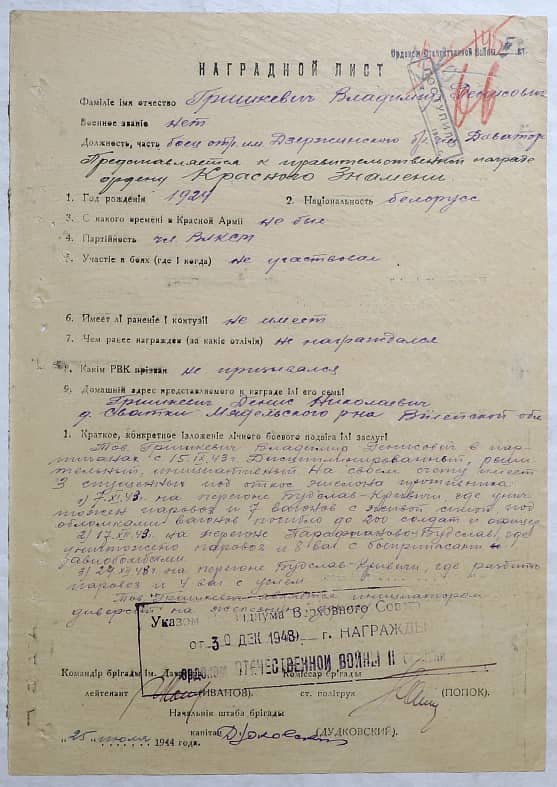 Орденом Отечественной Войны II ст.
НАГРАДНОЙ ЛИСТ
ПОСТУПИЛО
66
Фамиліе імя отчество Гришкевич Владимир Денисович
Военное званіе нет
Должность, часть боец отр. им. Дзержинского бр. им.
Представляется к правительственной награде
ордену Красного Знамени
1. Год рожденія 1924 2. Національность белорусс
3. С какого времені в Красной Армії не был
4. Партійность чл. ВЛКСМ
5. Участіе в боях (где і когда) не участвовал
6. Имеет лі раненіе і контузії не имеет
7. Чем ранее награжден (за какіе отлічія) не награждался
8. Какім РВК прізван не призывался
9. Домашній адрес представляемого к награде ілі его семьі
Гришкевич Денис Николаевич
д. Сватки Мядельского р-на Вилейской обл.
1. Краткое, конкретное ізложеніе лічного боевого подвіга ілі заслугі
Тов. Гришкевич Владимир Денисович в пар-
тизанах с 15.IX.43г. Дисциплинированный, реши-
тельный, инициативный. На своем счету имеет
3 спущенных под откос эшелона противника:
1) 7.XI.43г. на перегоне Будслав-Кривичи, где унич-
тожен паровоз и 7 вагонов с живой силой, под
обломками вагонов погибло до 200 солдат и офицер
2) 17.XI.43г. на перегоне Парафяново-Будслав, где
уничтожено паровоз и 8 ваг. с боеприпасами и
авиобомбами.
3) 27.XII.43г. на перегоне Будслав-Кривичи, где разбиты
паровоз и 4 ваг. с углем
Тов. Гришкевич является инициатором
диверсий на железной
Указом Президиума Верховного Совета
от 30 ДЕК 1948 г. НАГРАЖДЕН
ОРДЕНОМ ОТЕЧЕСТВЕННОЙ ВОЙНЫ II степени
Командір брігады ім. Комиссар брігады
лейтенант (ИВАНОВ). ст. політрук (ПОПОК).
Начальнік штаба брігады
капітан (ДУДКОВСКИЙ).
"25" июля 1944 года.